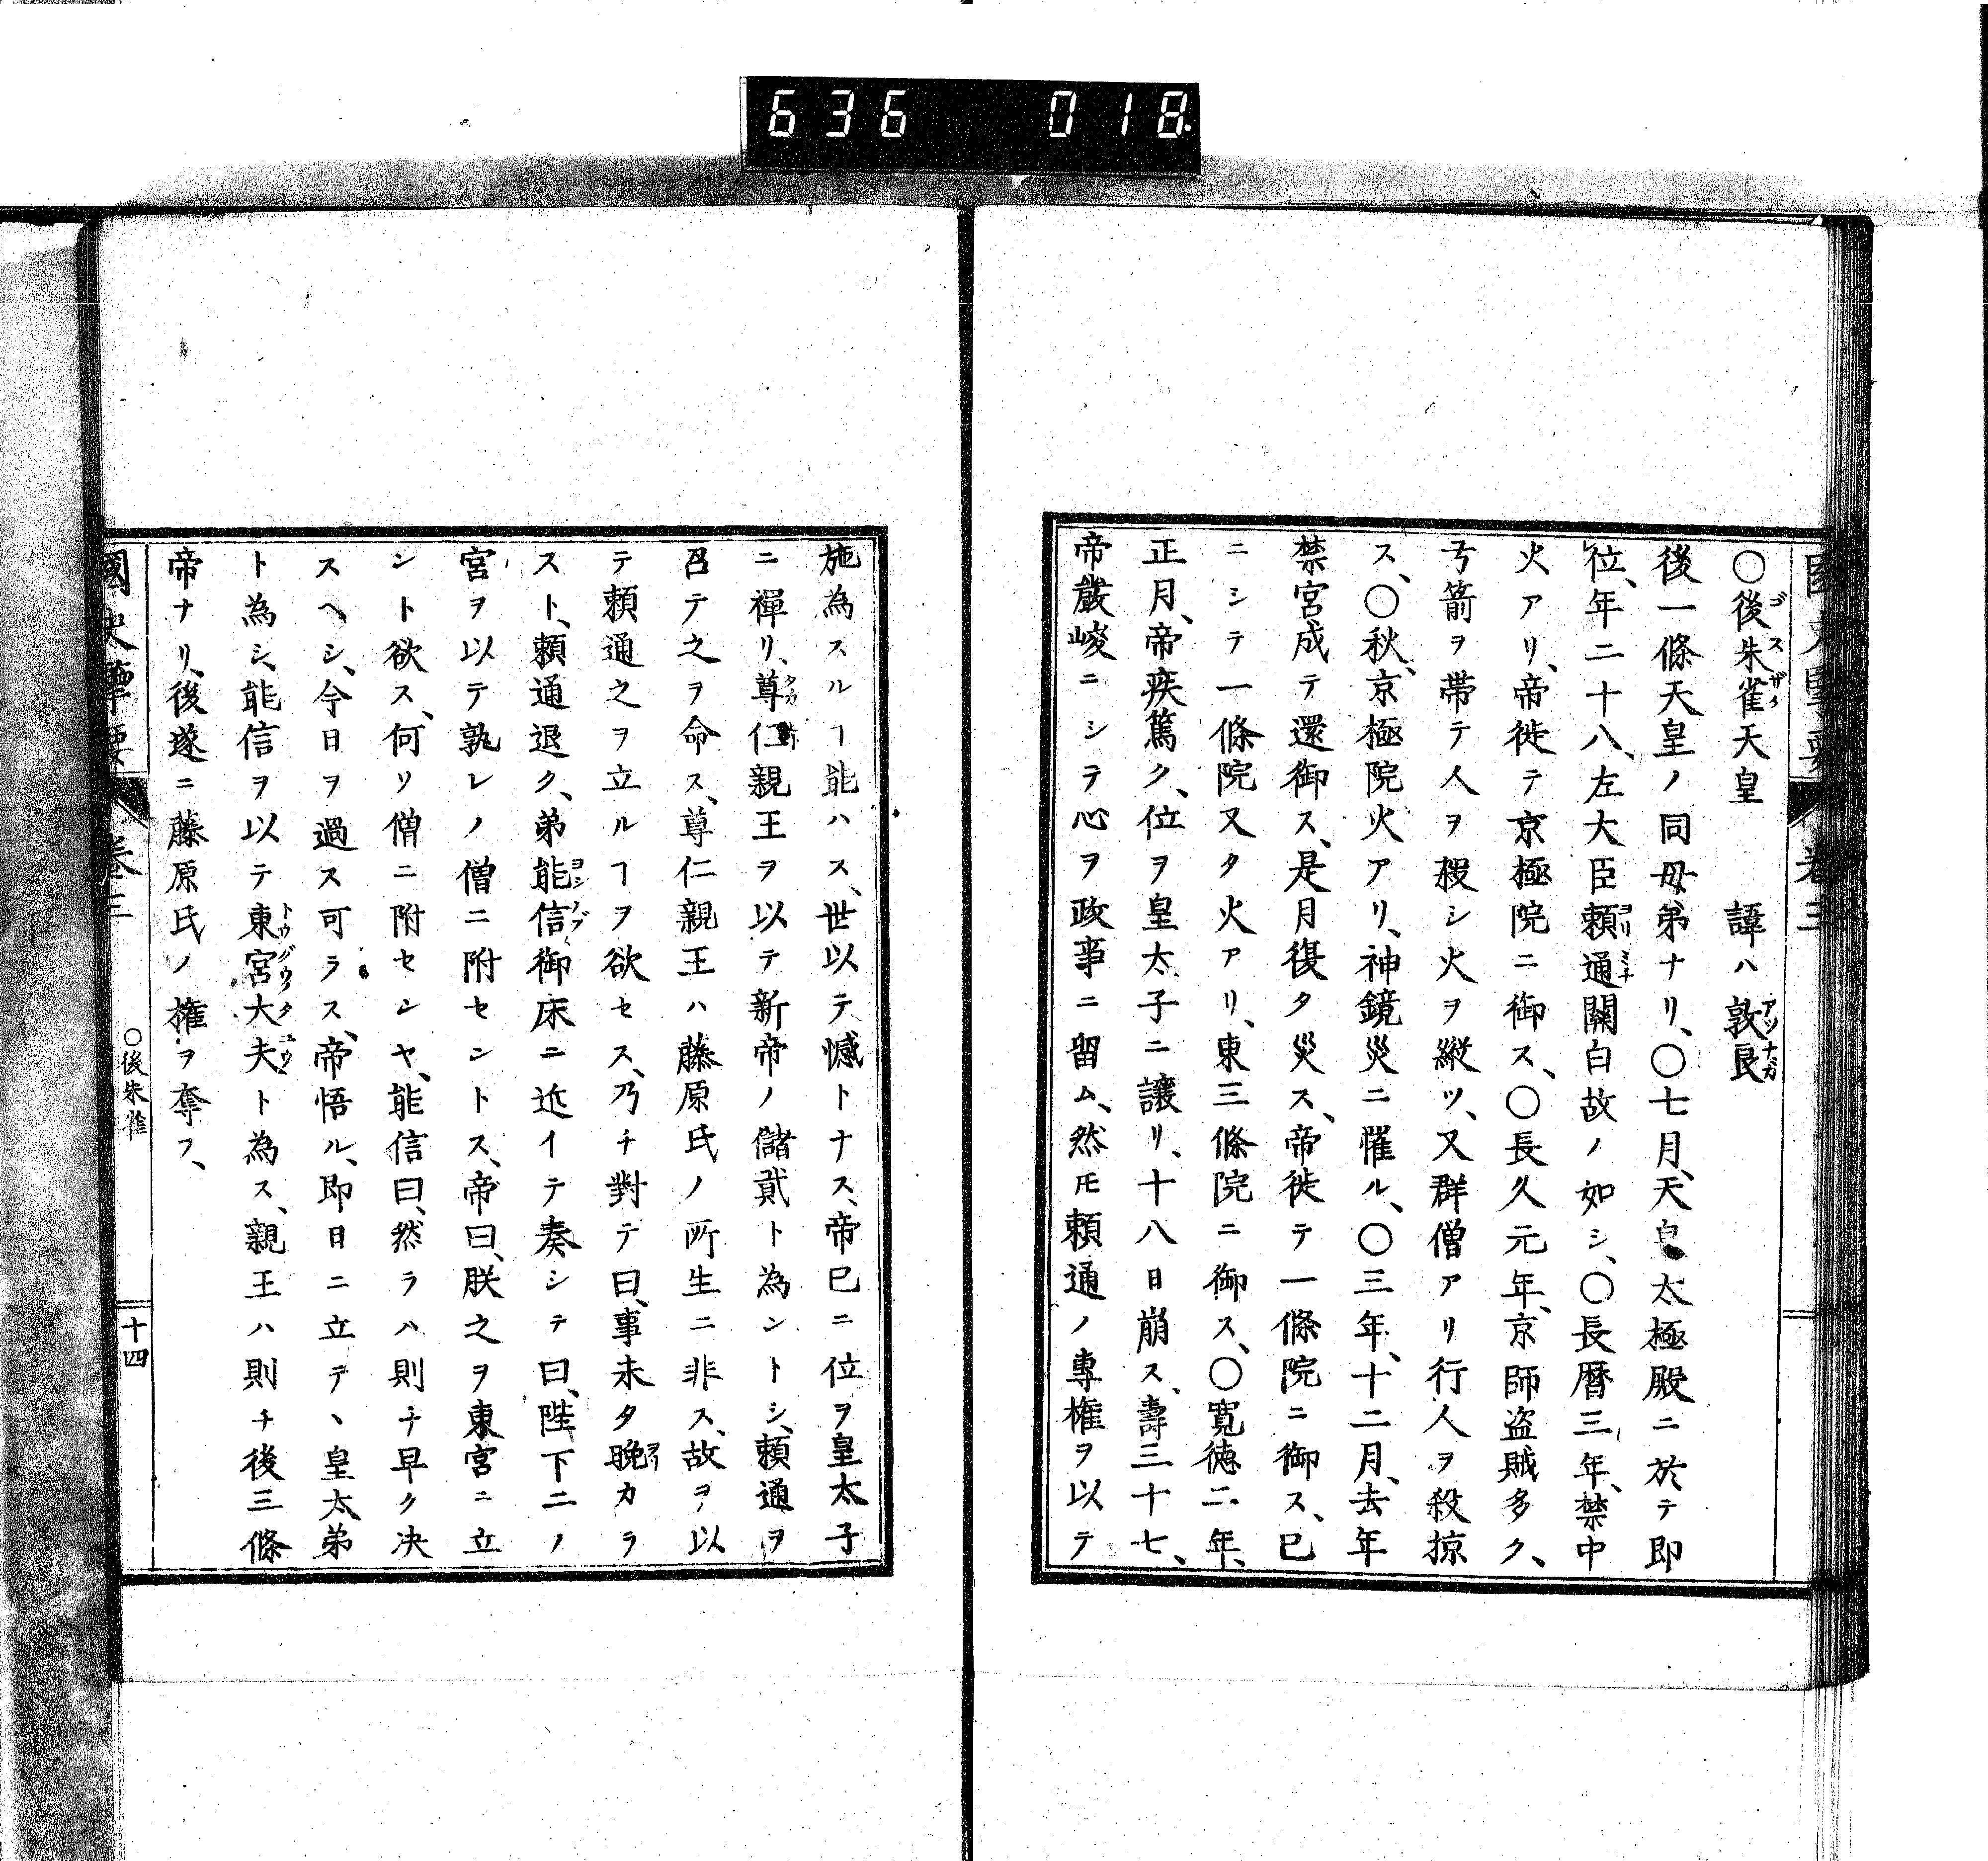 636 018
〇後朱雀天皇 諱ハ敦良
後一條天皇ノ同母弟ナリ、〇七月、天皇太極殿ニ於テ即
位、年二十八、左大臣頼通關白故ノ如シ、〇長暦三年、禁中
火アリ、帝徙テ京極院ニ御ス、〇長久元年、京師盗賊多ク、
弓箭ヲ帯テ人ヲ殺シ火ヲ縱ツ、又群僧アリ行人ヲ殺掠
ス、〇秋、京極院火アリ、神鏡災ニ罹ル、〇三年、十二月、去年
禁宮成テ還御ス、是月復タ災ス、帝徙テ一條院ニ御ス、已
ニシテ一條院又タ火アリ、東三條院ニ御ス、〇寛徳二年、
正月、帝疾篤ク、位ヲ皇太子ニ讓リ、十八日崩ス、壽三十七、
帝嚴峻ニシテ心ヲ政事ニ留ム、然𪜈頼通ノ專権ヲ以テ
施為スルヿ能ハス、世以テ憾トナス、帝已ニ位ヲ皇太子
ニ禪リ、尊仁親王ヲ以テ新帝ノ儲貳ト為ントシ、頼通ヲ
召テ之ヲ命ス、尊仁親王ハ藤原氏ノ所生ニ非ス、故ヲ以
テ頼通之ヲ立ルヿヲ欲セス、乃チ對テ曰、事未タ晩カラ
スト、頼通退ク、弟能信御床ニ近イテ奏シテ曰、陛下二ノ
宮ヲ以テ孰レノ僧ニ附セントス、帝曰、朕之ヲ東宮ニ立
ント欲ス、何ソ僧ニ附センヤ、能信曰、然ラハ則チ早ク决
スヘシ、今日ヲ過ス可ラス、帝悟ル、即日ニ立テヽ皇太弟
ト為シ、能信ヲ以テ東宮大夫ト為ス、親王ハ則チ後三條
帝ナリ、後遂ニ藤原氏ノ権ヲ奪フ、
國史擥要 卷三 〇後朱雀 十四